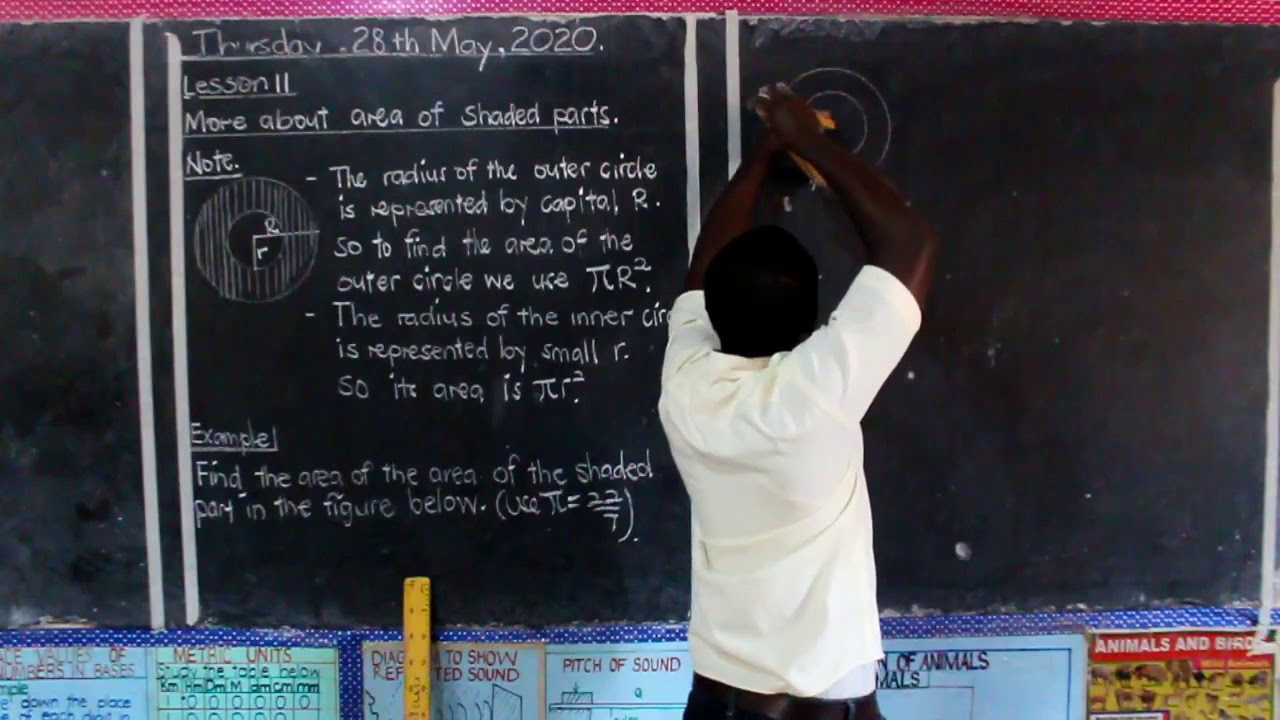 Thursday. 28th May, 2020.
Lesson 11
More about area of shaded parts.
Note.
- The radius of the outer circle
is represented by capital R.
so to find the area of the
outer circle we use πR²
- The radius of the inner circ
is represented by small r.
So its area is πr².
R
r
Example 1
Find the area of the area of the shaded
part in the figure below. (use π = 22/7).
VALUES OF
NUMBERS IN BASES
down the place
of each digit in
METRIC UNITS
Study the table below
Km Hm Dm M dm cm mm
1 0 0 0
DIAGRAM TO SHOW
REFLECTED SOUND
PITCH OF SOUND
OF ANIMALS
MALS
ANIMALS AND BIRD